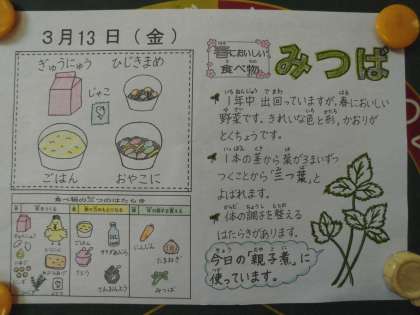 3月13日（金）
ぎゅうにゅう
ひじきまめ
じゃこ
ごはん
おやこに
食べ物の三つのはたらき
にんじん
たまねぎ
みつば
さとう
春においしい
食べ物
みつば
1年中出回っていますが、春においしい
野菜です。きれいな色と形、かおりが
とくちょうです。
1本の茎から葉が3まいずつ
つくことから「三つ葉」と
よばれます。
体の調子を整える
はたらきがあります。
今日の「親子煮」に
使っています。